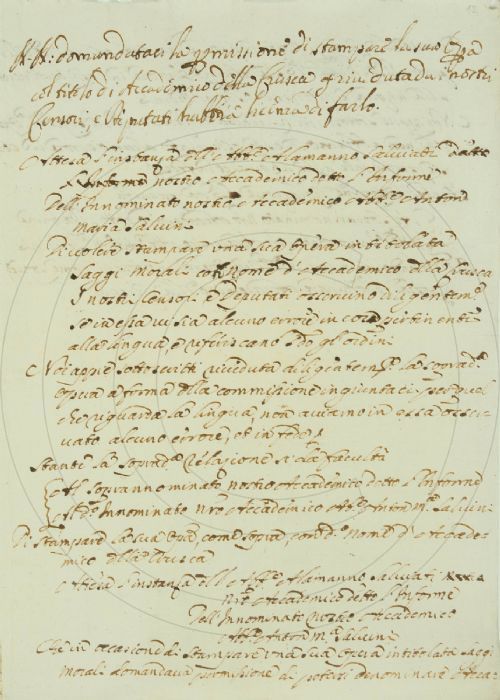 N.N. domandataci la permissione di stampare la sua Opa
col titolo di Accademico della Crusca, riveduta da i nostri
Censori, e Deputati habbia licenza di farlo.
Attesa l'instanza dell' Abbe Alamanno Salviati detto
nostro Accademico detto l'Informe
Dell'Innominato nostro Accademico Abbe Anton
maria Salvini
Di volere stampare una sua opera intitolata
Saggi Morali con nome d'Accademico della Crusca
I nostri Censori e Deputati osservino diligentemte
se in essa vi sia alcuno errore in cose pertinenti
alla lingua, e riferiscano sdo gli ordini
Noi appiè sottoscritti riveduta diligentemte la sopradta
Opera a forma della commissione ingiuntaci per quel
che riguarda la lingua, non aviamo in essa osser
vato alcuno errore, et in fede
Stante la sopradta relazione si dà facultà
Al soprannominato nostro Accademico detto l'Informe
Al do Innominato nro Accademico Abbe Anton Ma Salvini
Di stampare la sua Opa come sopra, con do nome d'Accade
mico della Crusca
Attesa l'instanza dell' Abbe Alamanno Salviati
nro Accademico detto l'Informe
Dell'Innominato nostro Accademico
Abbe Anton Ma Salvini
Che in occasione di stampare una sua opera intitolata Saggi
Morali domandava permissione di potersi denominare Acca